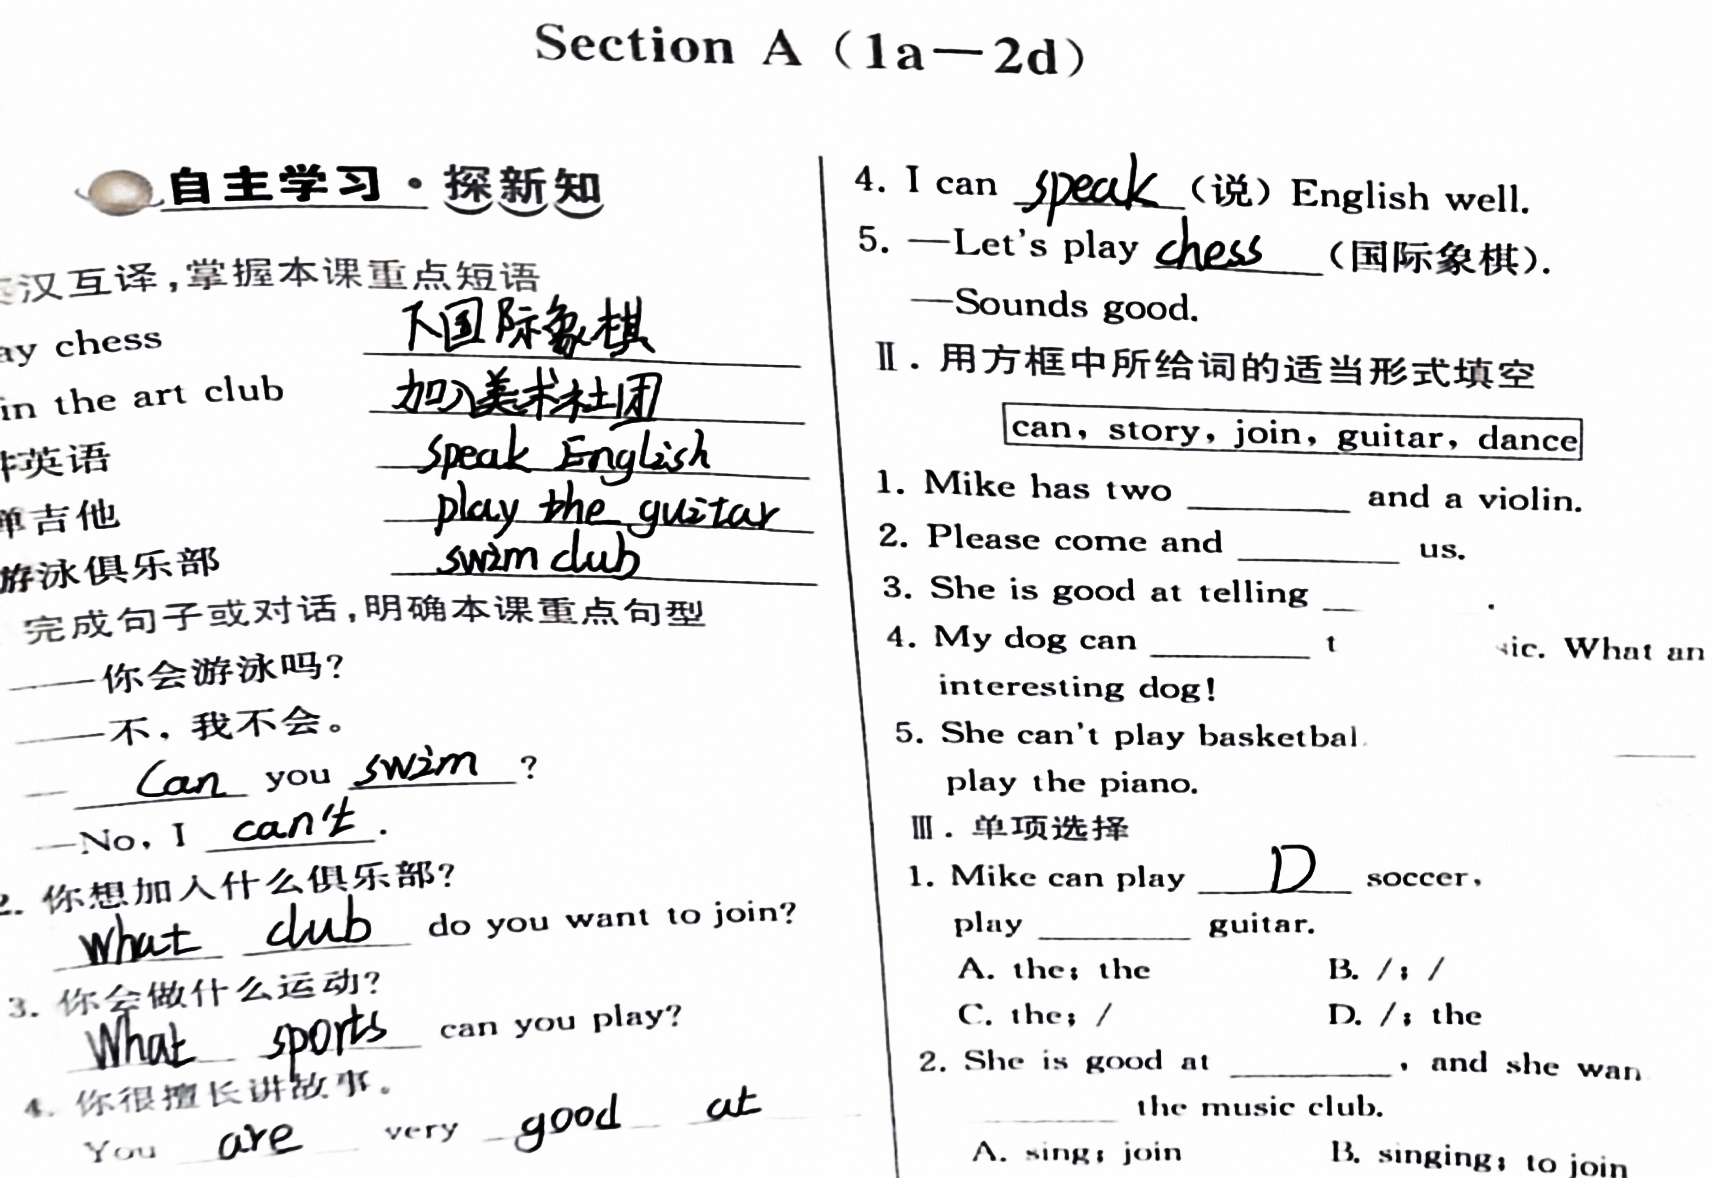 Section A (1a—2d)
自主学习·探新知
汉互译,掌握本课重点短语
chess 下国际象棋
in the art club 加入美术社团
英语 speak English
弹吉他 play the guitar
游泳俱乐部 swim club
完成句子或对话,明确本课重点句型
——你会游泳吗?
——不,我不会。
— Can you swim ?
—No, I can't .
2. 你想加入什么俱乐部?
What club do you want to join?
3. 你会做什么运动?
What sports can you play?
4. 你很擅长讲故事。
You are very good at
4. I can speak (说) English well.
5. —Let's play chess (国际象棋).
—Sounds good.
Ⅱ. 用方框中所给词的适当形式填空
can, story, join, guitar, dance
1. Mike has two ________ and a violin.
2. Please come and ________ us.
3. She is good at telling __ .
4. My dog can ________ What an
interesting dog!
5. She can't play
play the piano.
Ⅲ. 单项选择
1. Mike can play D soccer,
play ________ guitar.
A. the; the B. /; /
C. the; / D. /; the
2. She is good at ________, and she
________ the music club.
A. sing; join B. singing; to join